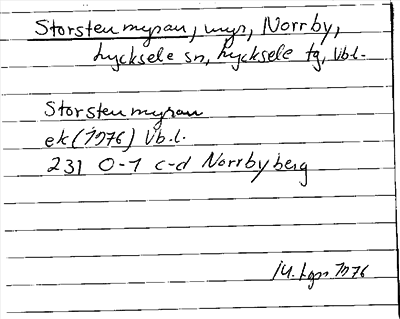 Storstenmyran, myr, Norrby,
Lycksele sn, Lycksele tg, Vb.l.
Storstenmyran
ek (1976) Vb.l.
231 0-1 c-d Norrbyberg
1976